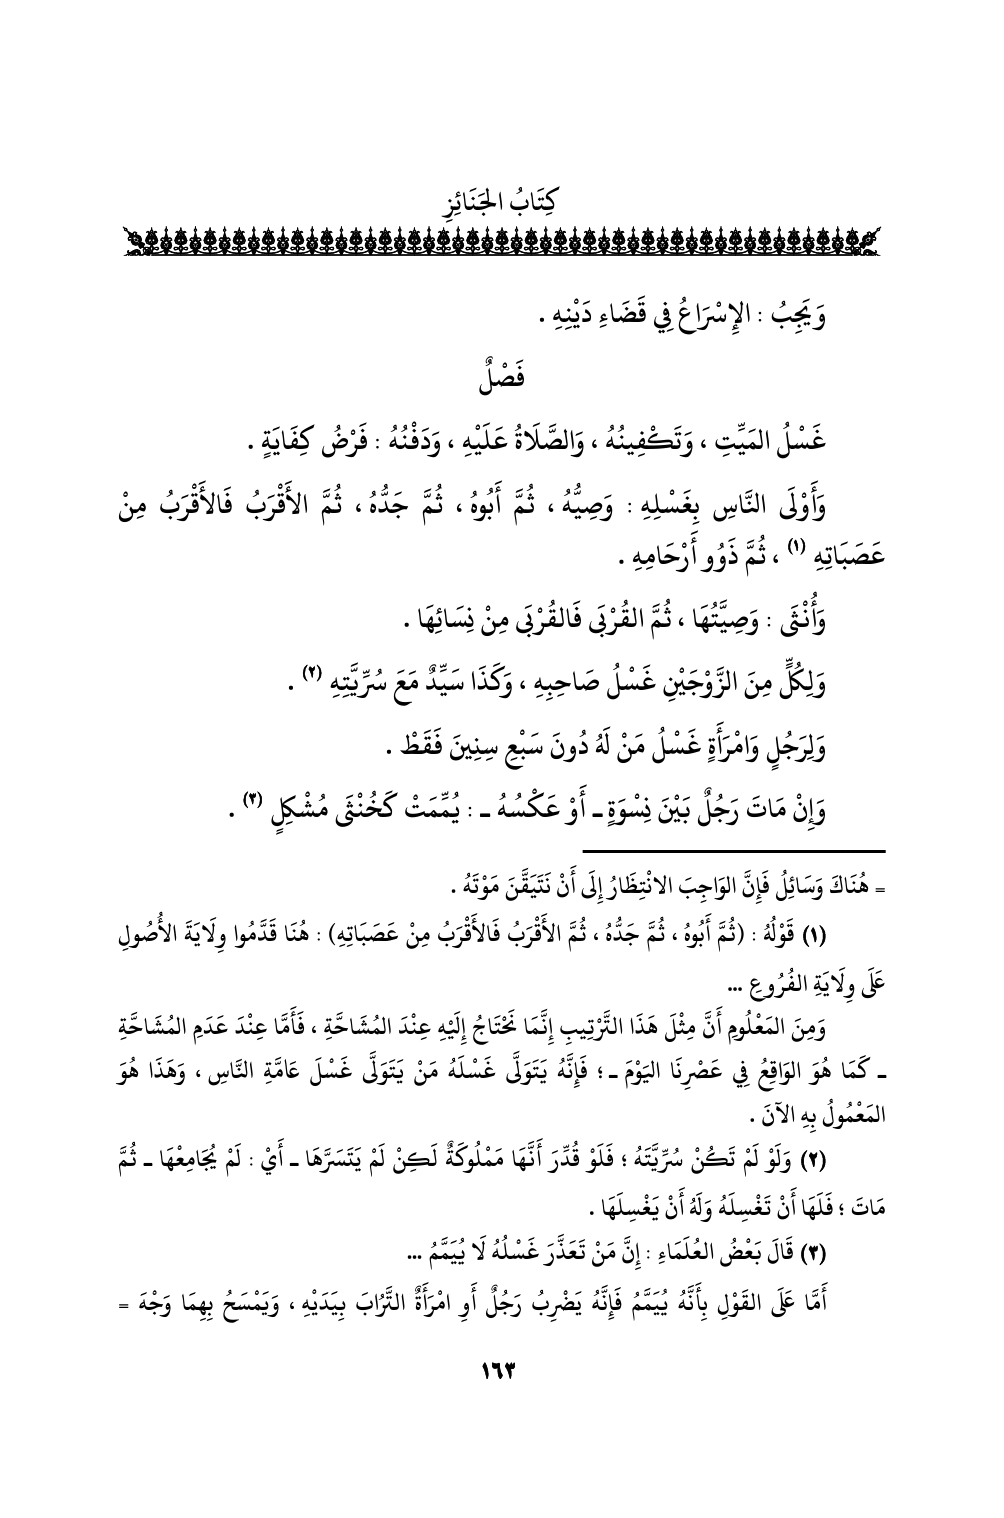 كِتَابُ الجَنَائِزِ
وَيَجِبُ : الإِسْرَاعُ فِي قَضَاءِ دَيْنِهِ .
فَصْلٌ
غَسْلُ المَيِّتِ ، وَتَكْفِينُهُ ، وَالصَّلَاةُ عَلَيْهِ ، وَدَفْنُهُ : فَرْضُ كِفَايَةٍ .
وَأَوْلَى النَّاسِ بِغَسْلِهِ : وَصِيُّهُ ، ثُمَّ أَبُوهُ ، ثُمَّ جَدُّهُ ، ثُمَّ الأَقْرَبُ فَالأَقْرَبُ مِنْ
عَصَبَاتِهِ (١) ، ثُمَّ ذَوُو أَرْحَامِهِ .
وَأُنْثَى : وَصِيَّتُهَا ، ثُمَّ القُرْبَى فَالقُرْبَى مِنْ نِسَائِهَا .
وَلِكُلٍّ مِنَ الزَّوْجَيْنِ غَسْلُ صَاحِبِهِ ، وَكَذَا سَيِّدٌ مَعَ سُرِّيَّتِهِ (٢) .
وَلِرَجُلٍ وَامْرَأَةٍ غَسْلُ مَنْ لَهُ دُونَ سَبْعِ سِنِينَ فَقَطْ .
وَإِنْ مَاتَ رَجُلٌ بَيْنَ نِسْوَةٍ ـ أَوْ عَكْسُهُ ـ : يُمِّمَتْ كَخُنْثَى مُشْكِلٍ (٣) .
= هُنَاكَ وَسَائِلُ فَإِنَّ الوَاجِبَ الانْتِظَارُ إِلَى أَنْ نَتَيَقَّنَ مَوْتَهُ .
(١) قَوْلُهُ : (ثُمَّ أَبُوهُ ، ثُمَّ جَدُّهُ ، ثُمَّ الأَقْرَبُ فَالأَقْرَبُ مِنْ عَصَبَاتِهِ) : هُنَا قَدَّمُوا وِلَايَةَ الأُصُولِ
عَلَى وِلَايَةِ الفُرُوعِ ...
وَمِنَ المَعْلُومِ أَنَّ مِثْلَ هَذَا التَّرْتِيبِ إِنَّمَا نَحْتَاجُ إِلَيْهِ عِنْدَ المُشَاحَّةِ ، فَأَمَّا عِنْدَ عَدَمِ المُشَاحَّةِ
ـ كَمَا هُوَ الوَاقِعُ فِي عَصْرِنَا اليَوْمَ ـ ؛ فَإِنَّهُ يَتَوَلَّى غَسْلَهُ مَنْ يَتَوَلَّى غَسْلَ عَامَّةِ النَّاسِ ، وَهَذَا هُوَ
المَعْمُولُ بِهِ الآنَ .
(٢) وَلَوْ لَمْ تَكُنْ سُرِّيَّتَهُ ؛ فَلَوْ قُدِّرَ أَنَّهَا مَمْلُوكَةٌ لَكِنْ لَمْ يَتَسَرَّهَا ـ أَيْ : لَمْ يُجَامِعْهَا ـ ثُمَّ
مَاتَ ؛ فَلَهَا أَنْ تَغْسِلَهُ وَلَهُ أَنْ يَغْسِلَهَا .
(٣) قَالَ بَعْضُ العُلَمَاءِ : إِنَّ مَنْ تَعَذَّرَ غَسْلُهُ لَا يُيَمَّمُ ...
أَمَّا عَلَى القَوْلِ بِأَنَّهُ يُيَمَّمُ فَإِنَّهُ يَضْرِبُ رَجُلٌ أَوِ امْرَأَةٌ التُّرَابَ بِيَدَيْهِ ، وَيَمْسَحُ بِهِمَا وَجْهَ =
١٦٣